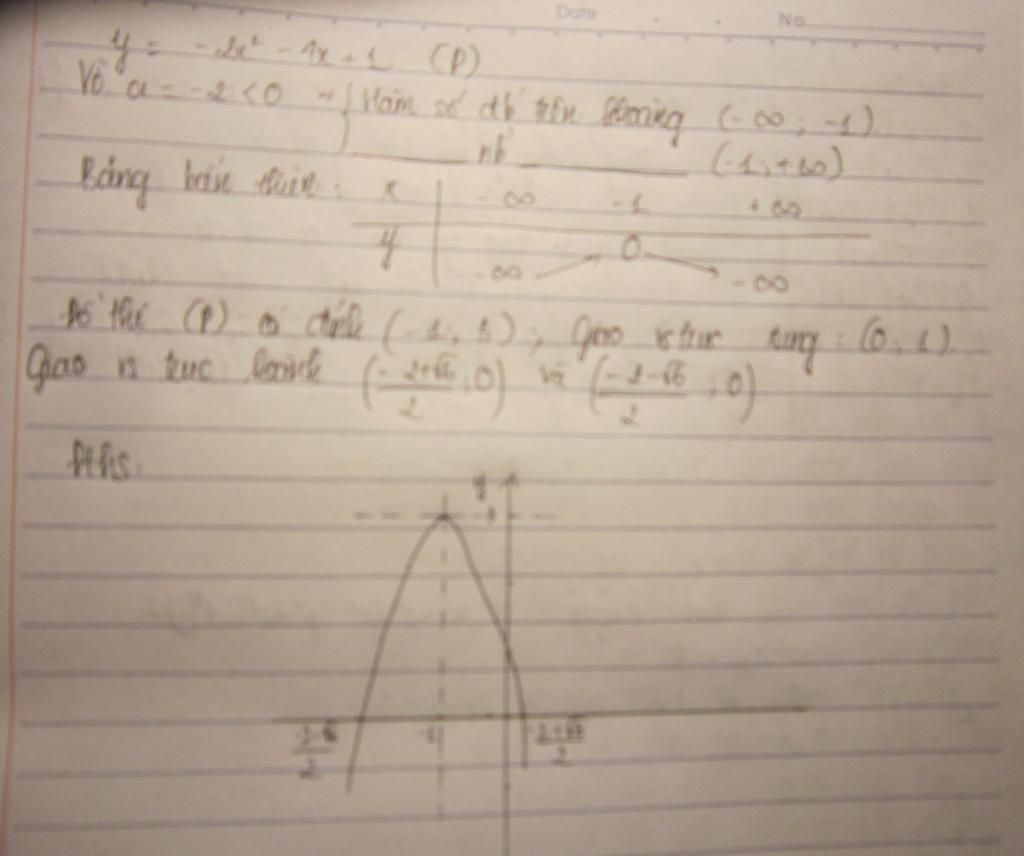 Date No
y = -2x² - 4x + 1 (P)
Vì a = -2 < 0 → { Hàm số đb trên khoảng (-∞ ; -1)
nb (-1 ; +∞)
Bảng biến thiên : x -∞ -1 +∞
y -∞ 0 -∞
Đồ thị (P) có đỉnh (-1, 3) ; Giao vs trục tung : (0, 1)
Giao vs trục hoành (-2+√6/2 ; 0) và (-2-√6/2 ; 0)
Đths.
y
3
-2-√6/2 -1 -2+√6/2